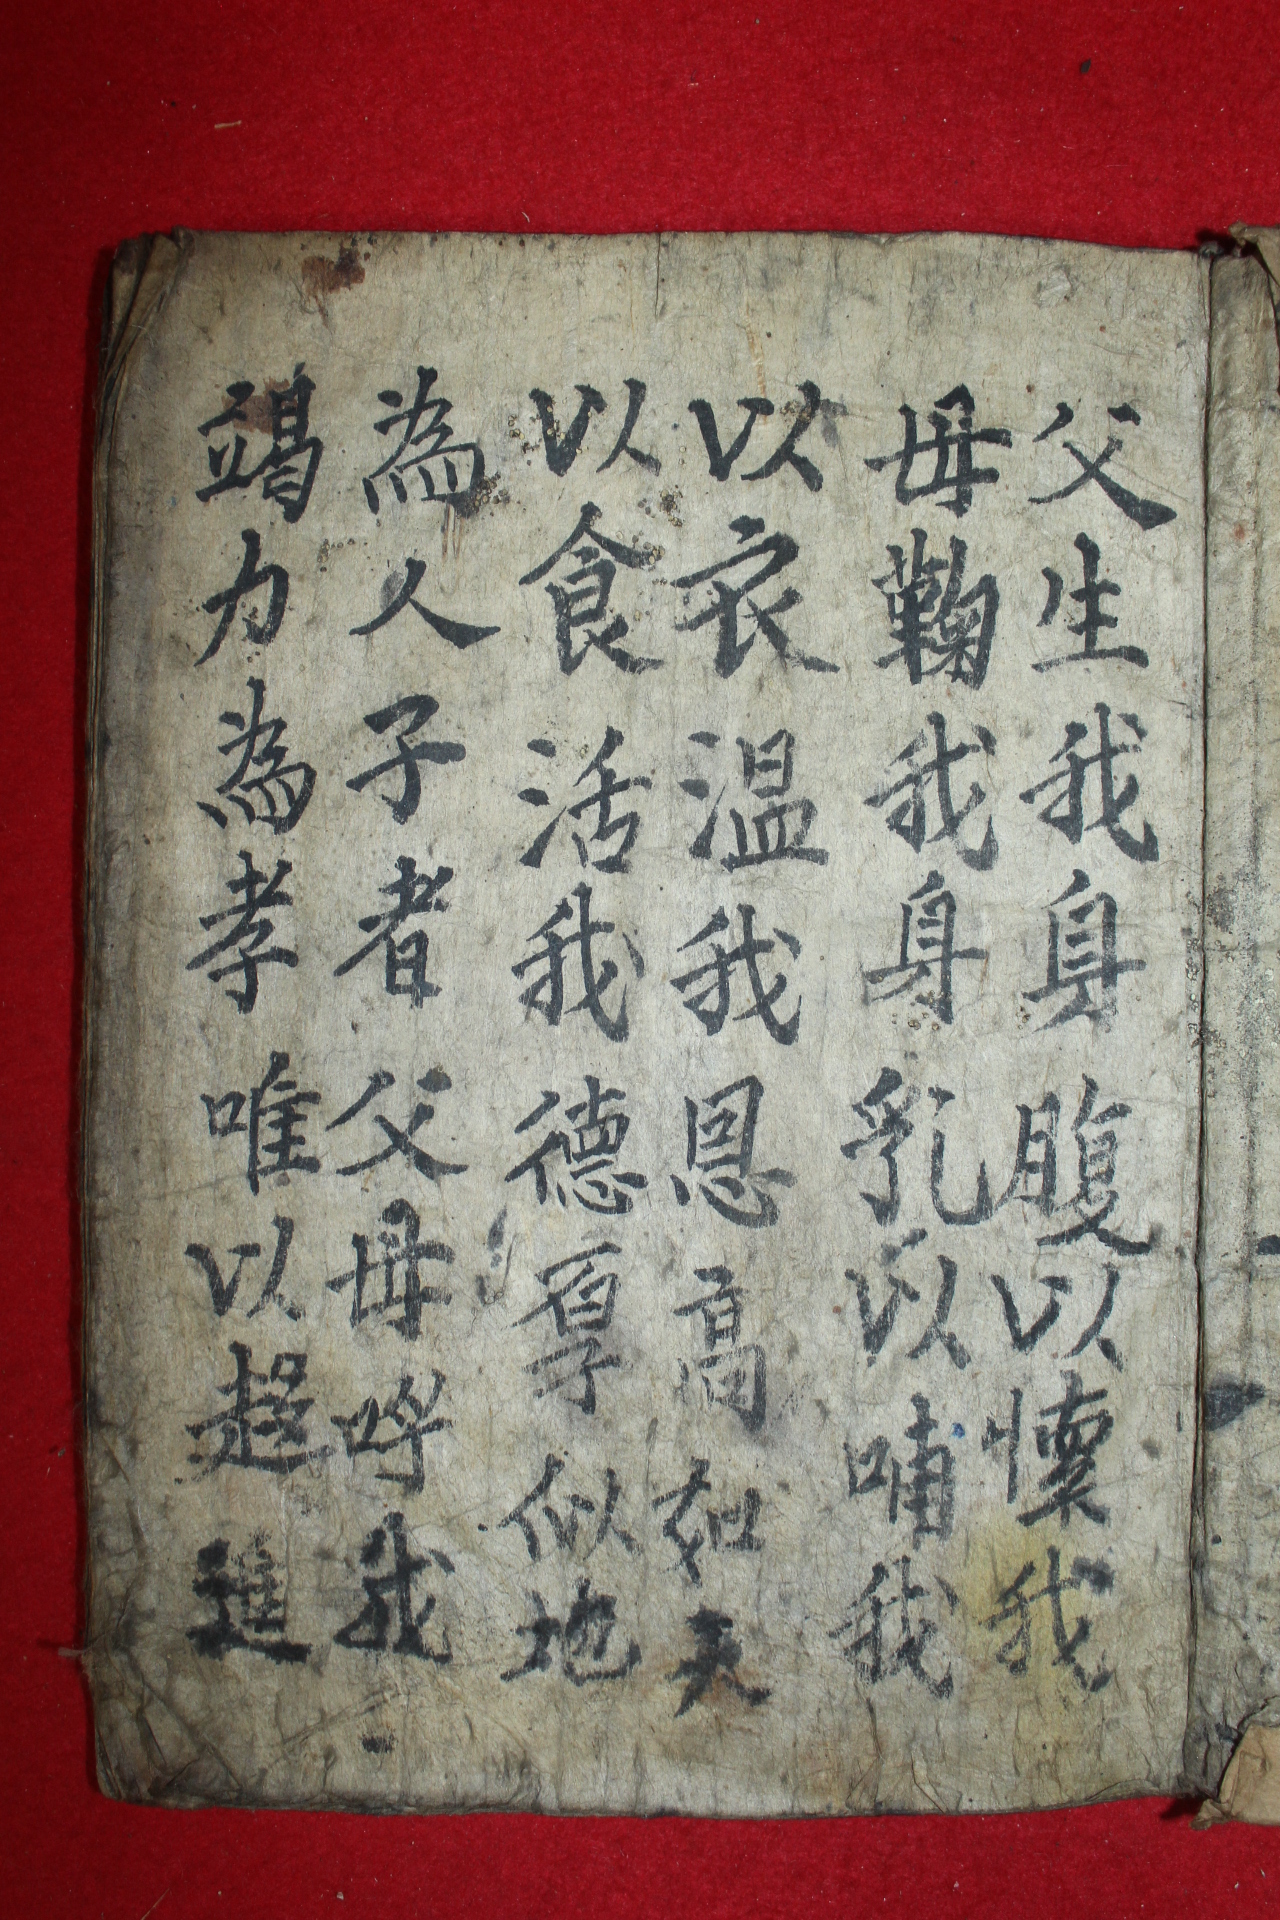 父生我身腹以懷我
母鞠我身乳以哺我
以衣温我恩高如天
以食活我德厚似地
為人子者父母呼我
竭力為孝唯以趍進